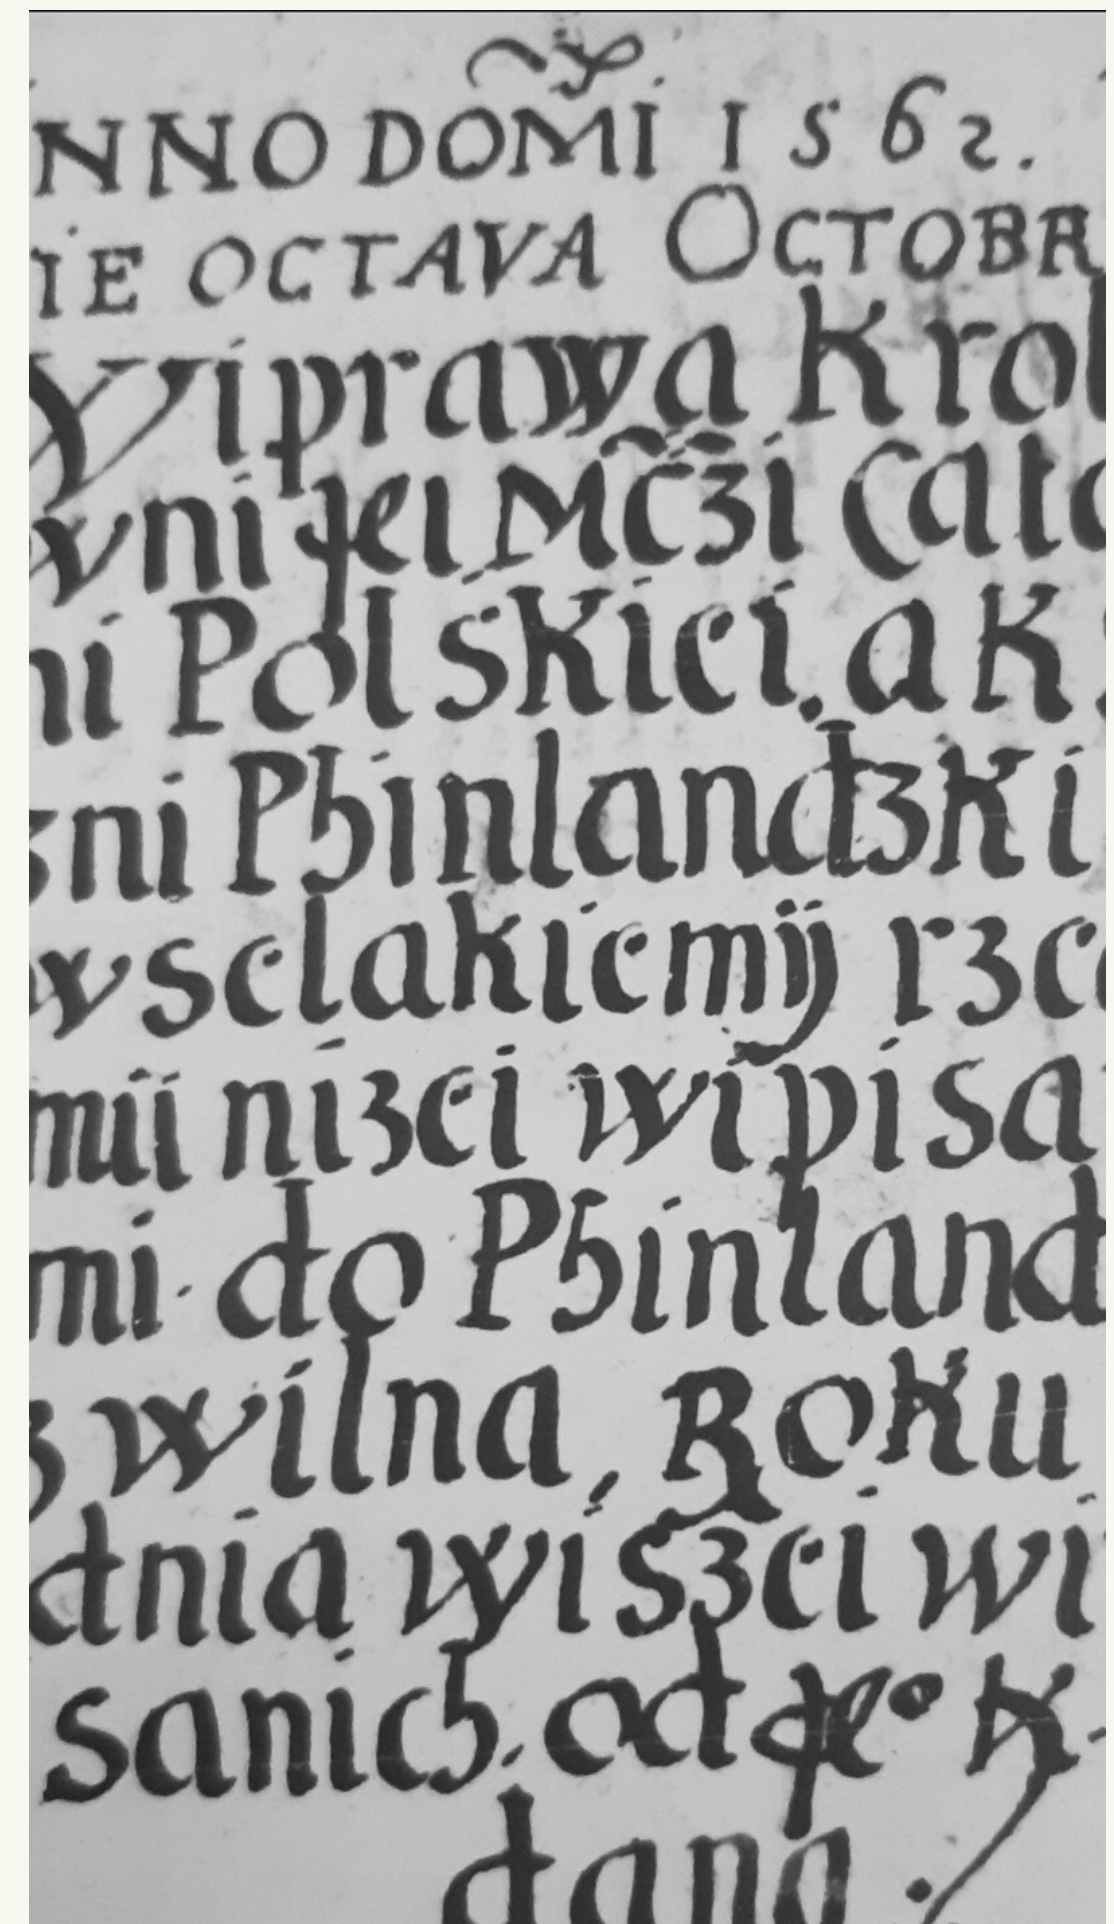 NNO DOM̃I 1562.
IE OCTAVA OCTOBR
Viprawa Krol
wni jei Mc̃zi Cato
ni Polskiei. a K
zni Phinlandzki
wselakiemÿ rzec
mii nizei wipisa
mi. do Phinland
z wilna, Roku
dnia wiszei wi
sanich. od jeº K.
dana.